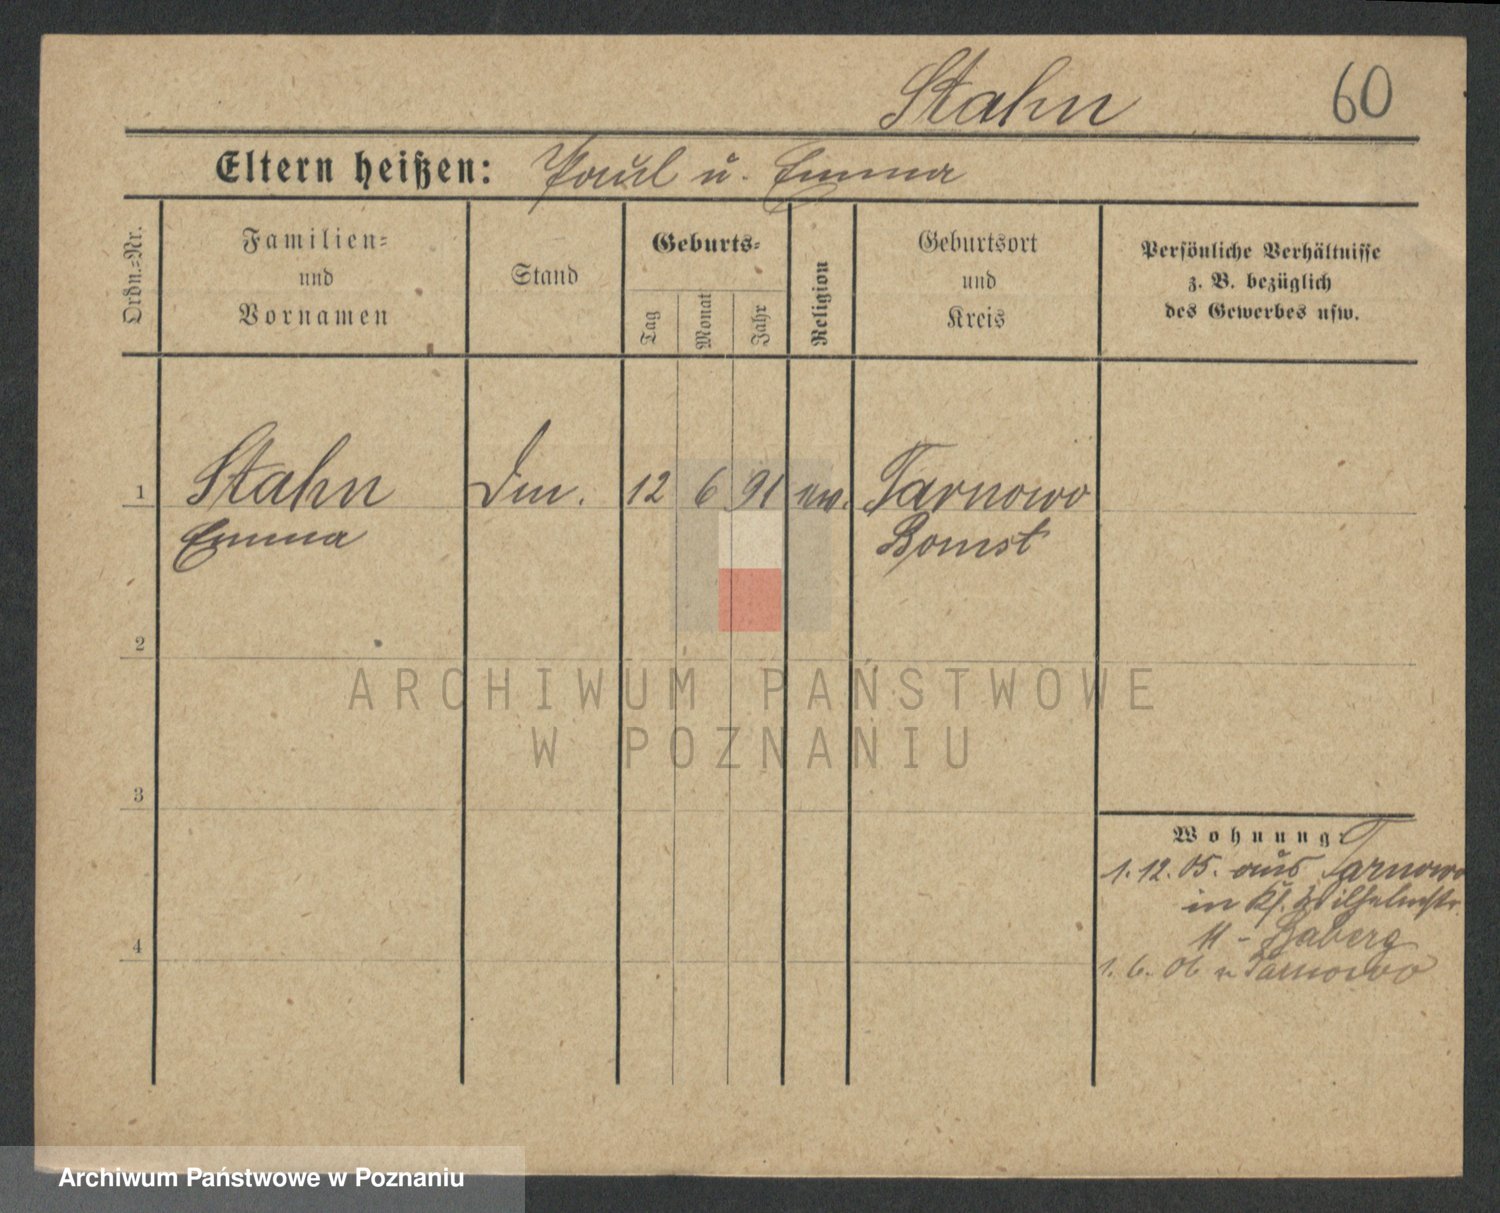 Stahn
60
Eltern heißen: Paul u. Emma
Ordn.-Nr.
Familien-
und
Vornamen
Stand
Geburts-
Tag
Monat
Jahr
Religion
Geburtsort
und
Kreis
Persönliche Verhältnisse
z. B. bezüglich
des Gewerbes usw.
1 Stahn 12 6 91 ev. Tarnowo
Emma Bomst
2
ARCHIWUM PAŃSTWOWE
W POZNANIU
3
Wohnung:
1. 12. 05. aus Tarnowo
in Kf. Wilhelmstr.
11 -
4
1. 6. 06 n Tarnowo
Archiwum Państwowe w Poznaniu